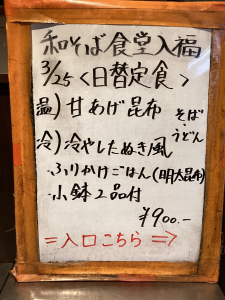 和そば食堂入福
3/25 <日替定食>
温) 甘あげ昆布 そば
冷) 冷やしたぬき風 うどん
・ふりかけごはん(明太昆布)
・小鉢2品付
¥900.-
=入口こちら⇒